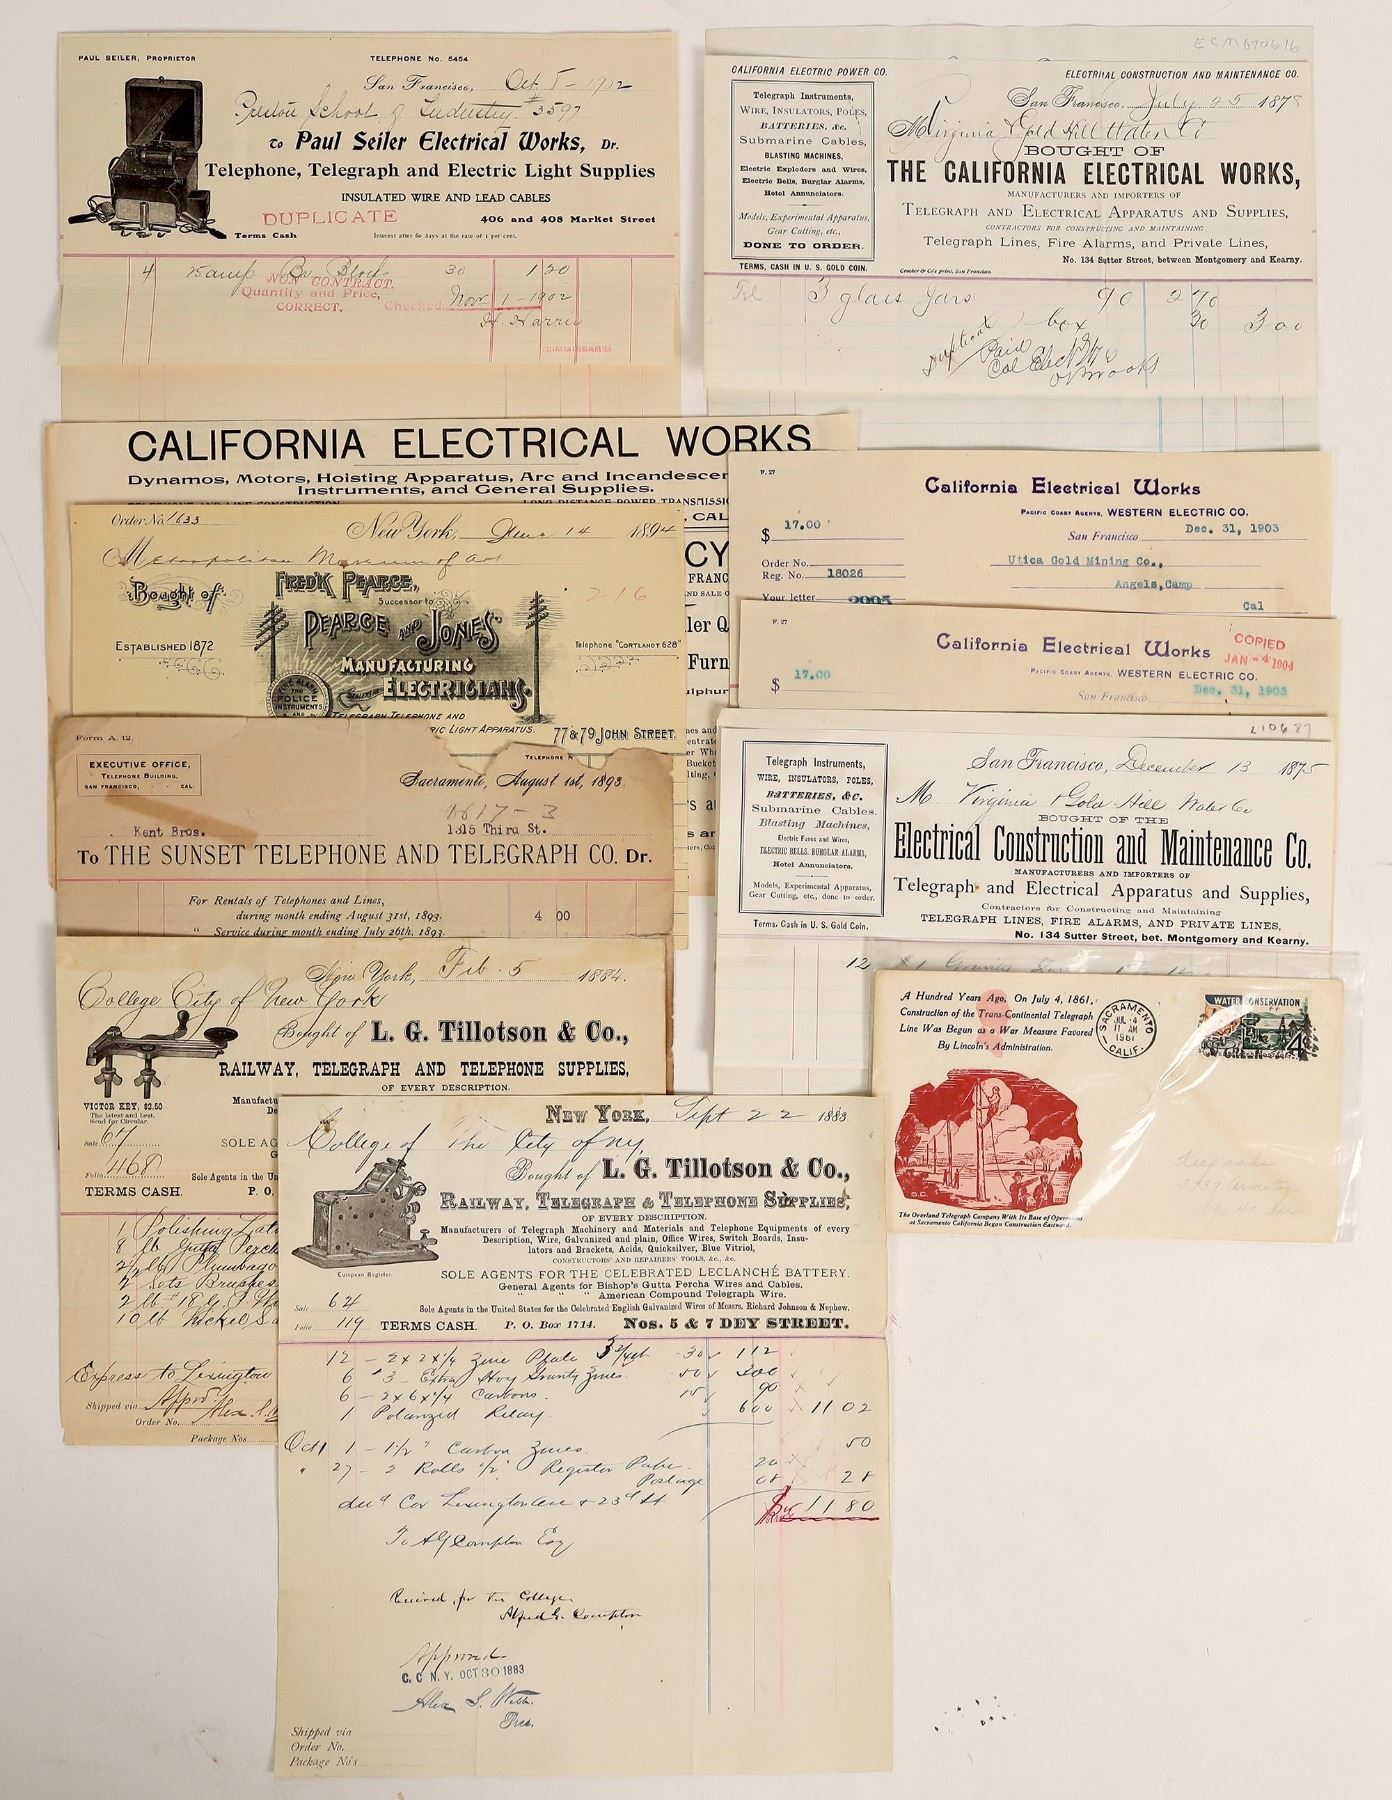 PAUL SEILER, PROPRIETOR
TELEPHONE No. 5454
San Francisco, Oct 5 - 1902
Preston School of Industry #3597
To Paul Seiler Electrical Works, Dr.
Telephone, Telegraph and Electric Light Supplies
INSULATED WIRE AND LEAD CABLES
DUPLICATE
406 and 408 Market Street
Terms Cash
Interest after 60 days at the rate of 1 per cent.
4 25 amp Br. Blocks 30 1 20
NON CONTRACT.
Quantity and Price,
CORRECT.
Checked Nov 1-1902
H. Harris
ECMD70616
CALIFORNIA ELECTRIC POWER CO.
ELECTRICAL CONSTRUCTION AND MAINTENANCE CO.
Telegraph Instruments,
WIRE, INSULATORS, POLES,
BATTERIES, &c.
Submarine Cables,
BLASTING MACHINES,
Electric Exploders and Wires,
Electric Bells, Burglar Alarms,
Hotel Annunciators.
Models, Experimental Apparatus,
Gear Cutting, etc.,
DONE TO ORDER.
TERMS, CASH IN U. S. GOLD COIN.
San Francisco, July 25 1878
M Virginia & Gold Hill Water Co
BOUGHT OF
THE CALIFORNIA ELECTRICAL WORKS,
MANUFACTURERS AND IMPORTERS OF
TELEGRAPH AND ELECTRICAL APPARATUS AND SUPPLIES,
CONTRACTORS FOR CONSTRUCTING AND MAINTAINING
Telegraph Lines, Fire Alarms, and Private Lines,
No. 134 Sutter Street, between Montgomery and Kearny.
Crocker & Co's print, San Francisco
3 glass Jars 90 2 70
box 30 3 00
Duplicate
Paid
Cal Elect
CALIFORNIA ELECTRICAL WORKS
Dynamos, Motors, Hoisting Apparatus, Arc and Incandescen
Instruments, and General Supplies.
LONG DISTANCE POWER TRANSMISSI
, CAL
CY
FRANC
Order No. 1633
New York, June 14 1894
Metropolitan Museum of Art
Bought of
FRED'K PEARCE,
Successor to
PEARCE AND JONES
MANUFACTURING
ELECTRICIANS.
216
ESTABLISHED 1872.
Telephone "CORTLANDT 628"
FIRE ALARM
AND
POLICE
INSTRUMENTS
TELEGRAPH, TELEPHONE AND
RIC LIGHT APPARATUS.
77 & 79 JOHN STREET.
F. 27
California Electrical Works
PACIFIC COAST AGENTS, WESTERN ELECTRIC CO.
$ 17.00
San Francisco Dec. 31, 1903
Order No.
Reg. No. 18026
Your letter
Utica Gold Mining Co.,
Angels, Camp
Cal
F. 27
California Electrical Works
COPIED
JAN -4 1904
PACIFIC COAST AGENTS, WESTERN ELECTRIC CO.
$ 17.00
San Francisco Dec. 31, 1903
Form A. 12.
EXECUTIVE OFFICE,
TELEPHONE BUILDING,
SAN FRANCISCO, - - CAL.
TELEPHONE N
Sacramento, August 1st, 1893
Kent Bros.
1315 Third St.
To THE SUNSET TELEPHONE AND TELEGRAPH CO. Dr.
For Rentals of Telephones and Lines,
during month ending August 31st, 1893. 4 00
" Service during month ending July 26th, 1893.
L10687
Telegraph Instruments,
WIRE, INSULATORS, POLES,
BATTERIES, &C.
Submarine Cables,
Blasting Machines,
Electric Fuses and Wires,
ELECTRIC BELLS, BURGLAR ALARMS,
Hotel Annunciators.
Models, Experimental Apparatus,
Gear Cutting, etc., done to order.
Terms, Cash in U. S. Gold Coin.
San Francisco, December 13 1875
M Virginia & Gold Hill Water Co
BOUGHT OF THE
Electrical Construction and Maintenance Co.
MANUFACTURERS AND IMPORTERS OF
Telegraph and Electrical Apparatus and Supplies,
Contractors for Constructing and Maintaining
TELEGRAPH LINES, FIRE ALARMS, AND PRIVATE LINES,
No. 134 Sutter Street, bet. Montgomery and Kearny.
12
New York, Feb. 5 1884.
College City of New York
Bought of L. G. Tillotson & Co.,
RAILWAY, TELEGRAPH AND TELEPHONE SUPPLIES,
OF EVERY DESCRIPTION.
VICTOR KEY, $2.50
The latest and best.
Send for Circular.
Manufactu
De
Sale 67
SOLE AG
Folio 468
Sole Agents in the Unit
TERMS CASH.
P. O.
1 Polishing Lat
8 lb Gutta Perch
2 1/2 lb Plumbago
2 Sets Brushes
2 lb #18 G. P. W
10 lb Nickel Sa
Express to Lexington
Shipped via
Order No.
Package Nos
A Hundred Years Ago, On July 4, 1861,
Construction of the Trans-Continental Telegraph
Line Was Begun as a War Measure Favored
By Lincoln's Administration.
SACRAMENTO
JUL 4
11 AM
1961
CALIF.
WATER CONSERVATION
4¢
The Overland Telegraph Company With Its Base of Operations
at Sacramento California Began Construction Eastward.
NEW YORK, Sept 22 1883
College of The City of NY,
Bought of L. G. Tillotson & Co.,
RAILWAY, TELEGRAPH & TELEPHONE SUPPLIES,
OF EVERY DESCRIPTION.
Manufacturers of Telegraph Machinery and Materials and Telephone Equipments of every
Description, Wire, Galvanized and plain, Office Wires, Switch Boards, Insu-
lators and Brackets, Acids, Quicksilver, Blue Vitriol,
CONSTRUCTORS' AND REPAIRERS' TOOLS, &c., &c.
European Register.
SOLE AGENTS FOR THE CELEBRATED LECLANCHÉ BATTERY.
General Agents for Bishop's Gutta Percha Wires and Cables.
" " " American Compound Telegraph Wire.
Sale 64
Sole Agents in the United States for the Celebrated English Galvanized Wires of Messrs. Richard Johnson & Nephew.
Folio 119
TERMS CASH. P. O. Box 1714. Nos. 5 & 7 DEY STREET.
12 - 2 x 2 x 1/4 Zinc Plate 30 1 12
6 #3 - Extra Hvy Gravity Zincs 50 3 00
6 - 2 x 6 x 1/4 Carbons. 15 90
1 Polarized Relay. 6 00 11 02
Oct 1 1 - 1 1/2" Carbon Zincs. 50
" 27 - 2 Rolls 1/2" Register Paper 20
Postage 08 28
11 80
del'd Cor Lexington Ave & 23d St
To A G Compton Esq
Received for the College
Alfred G. Compton
Approved
C. C. N. Y. OCT 30 1883
Alex. S. Webb.
Pres.
Shipped via
Order No.
Package No's